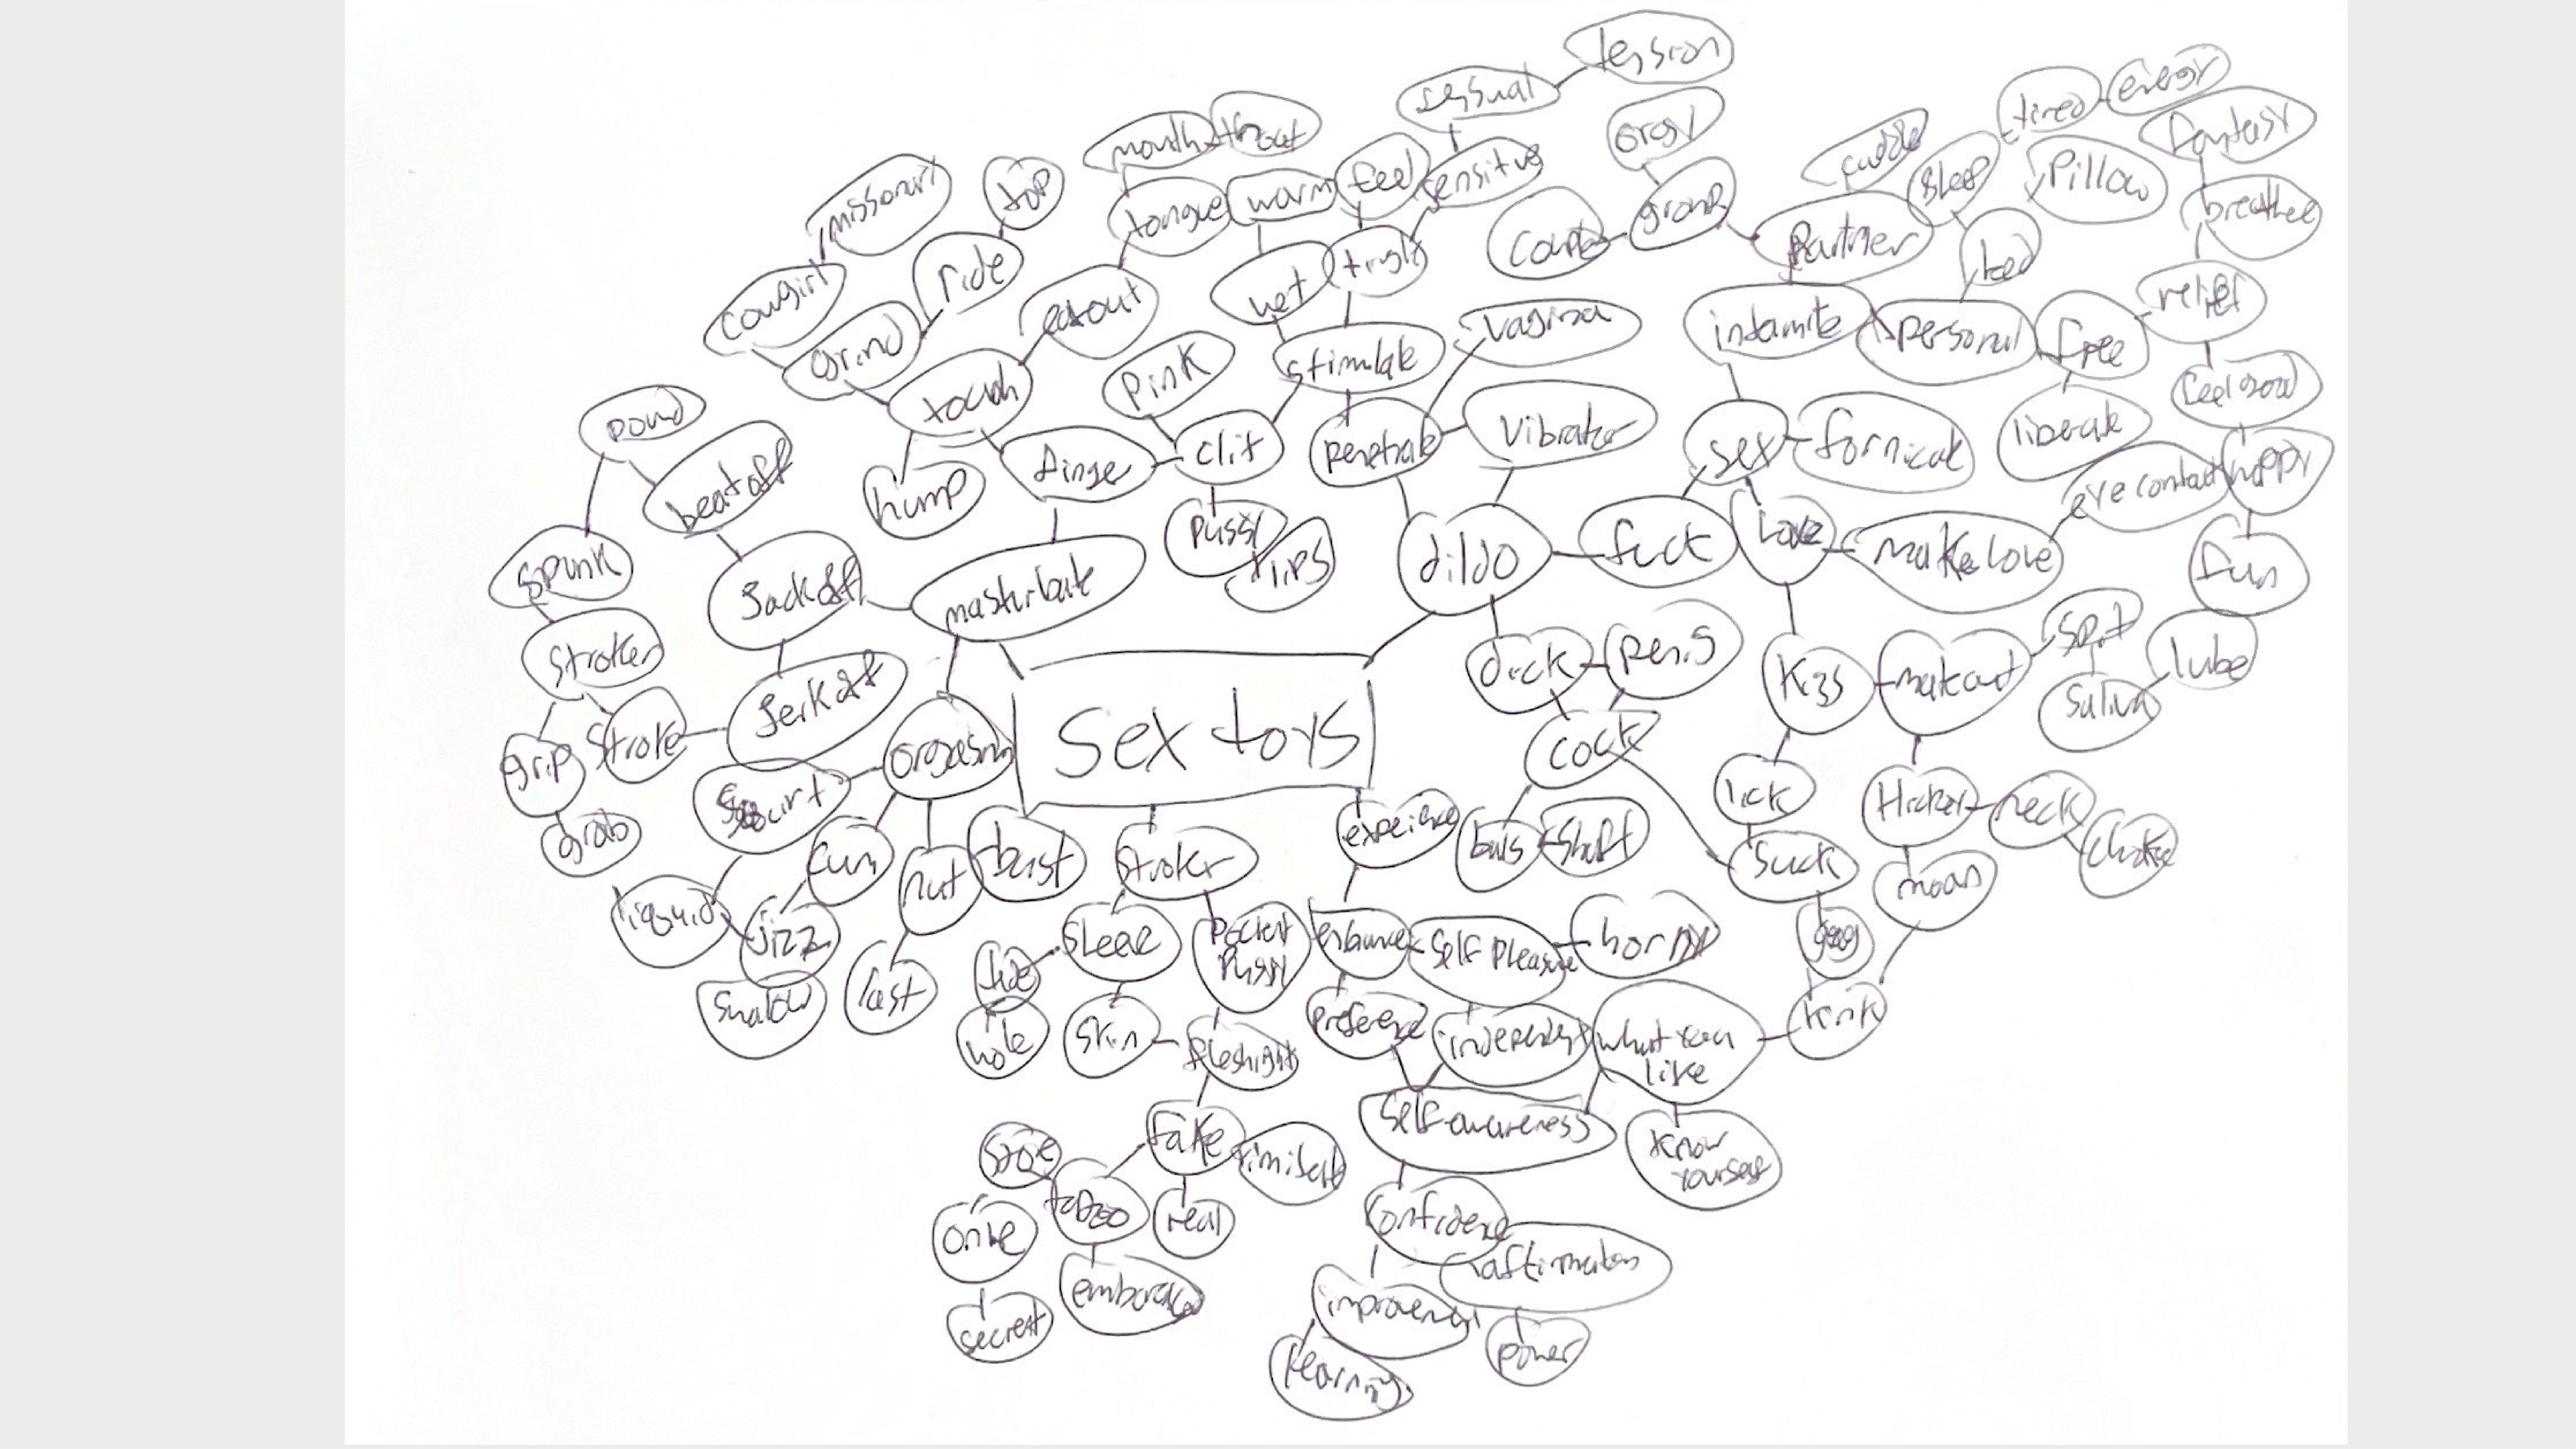 tession
sesual
energy
tired
orgy
fantasy
mouth
throat
cuddle
feel
sensitve
sleep
Pillow
missonary
top
tongue
warm
group
breathee
Partner
Couple
ride
wet
tingly
bed
cowgirl
eatout
relief
intamite
personal
free
vagina
grind
stimulate
Pink
feel good
touch
pound
liberate
Vibrator
sex
fornicate
clit
penetrate
finge
happy
beatoff
hump
eye contact
Pussy
lips
Love
makelove
dildo
fuck
fun
spunk
Jackoff
masturbate
Spit
Stroker
dick
penis
Kiss
makeout
lube
Jerkoff
Saliva
Stroke
orgasm
Sex toys
cock
grip
Squirt
lick
Hickey
neck
experience
balls
shaft
grab
cum
nut
burst
Stroker
Suck
Choke
moan
liquid
jizz
Sleeve
Pocket
Pussy
enhance
Self Pleasure
horny
gag
last
Swalow
kink
preference
independent
What you
like
hole
Skin
fleshlight
Self-awareness
fake
simisate
Know
yourself
store
taboo
real
Confidence
onlie
affirmation
embarased
improvement
secret
power
learning